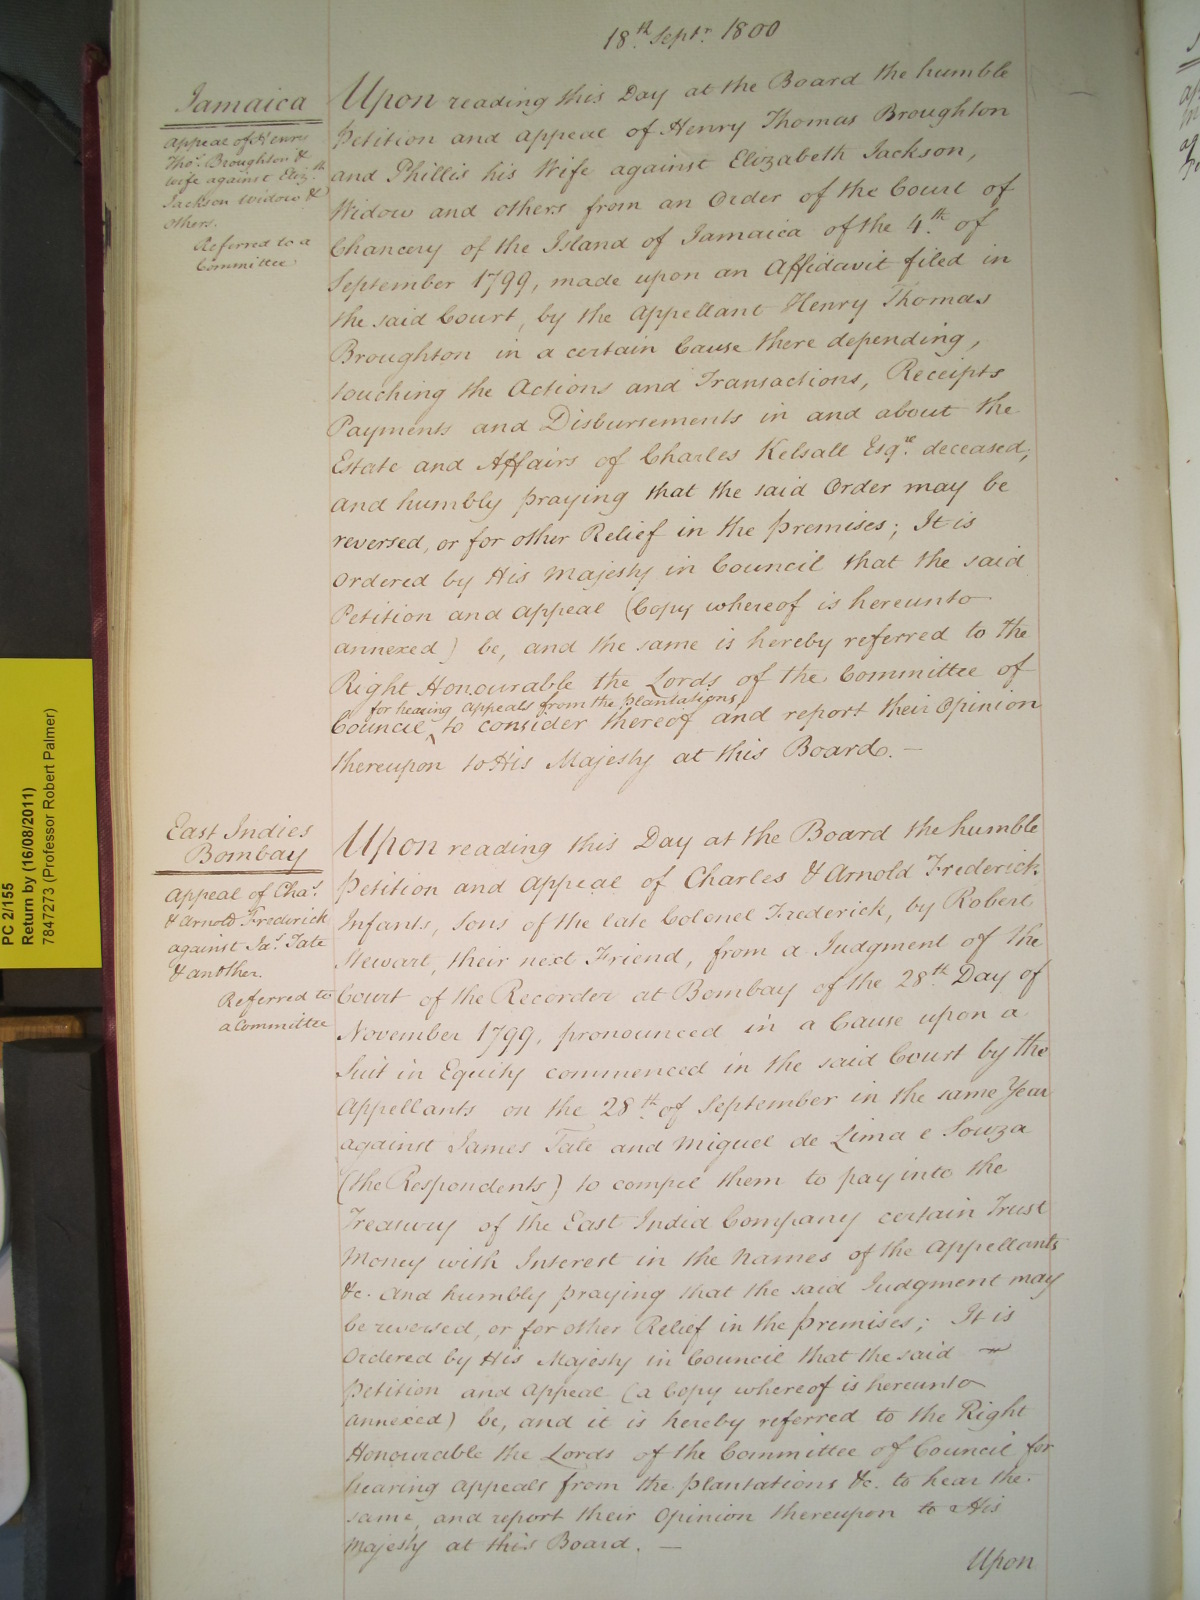 18th. Septr. 1800
Jamaica
Appeal of Henry
Thos. Broughton &
Wife against Elizth.
Jackson Widow &
others.
Referred to a
Committee
Upon reading this Day at the Board the humble
Petition and Appeal of Henry Thomas Broughton
and Phillis his Wife against Elizabeth Jackson,
Widow and others from an Order of the Court of
Chancery of the Island of Jamaica of the 4th. of
September 1799, made upon an Affidavit filed in
the said Court, by the Appellant Henry Thomas
Broughton in a certain Cause there depending,
touching the Actions and Transactions, Receipts
Payments and Disbursements in and about the
Estate and Affairs of Charles Kelsall Esqre. deceased,
and humbly praying that the said Order may be
reversed, or for other Relief in the premises; It is
Ordered by His Majesty in Council that the said
Petition and Appeal (Copy whereof is hereunto
annexed) be, and the same is hereby referred to the
Right Honourable the Lords of the Committee of
for hearing Appeals from the Plantations,
Council to consider thereof and report their Opinion
thereupon to His Majesty at this Board. —
East Indies
Bombay
Appeal of Chas.
& Arnold Frederick
against Jas. Tate
& another.
Referred to
a Committee
Upon reading this Day at the Board the humble
Petition and Appeal of Charles & Arnold Frederick
Infants, Sons of the late Colonel Frederick, by Robert
Stewart, their next Friend, from a Judgment of the
Court of the Recorder at Bombay of the 28th. Day of
November 1799, pronounced in a Cause upon a
Suit in Equity commenced in the said Court by the
Appellants on the 28th. of September in the same Year
against James Tate and Miguel de Lima e Souza
(the Respondents) to compel them to pay into the
Treasury of the East India Company certain Trust
Money with Interest in the Names of the Appellants
&c. And humbly praying that the said Judgment may
be reversed, or for other Relief in the premises; It is
Ordered by His Majesty in Council that the said
Petition and Appeal (a Copy whereof is hereunto
annexed) be, and it is hereby referred to the Right
Honourable the Lords of the Committee of Council for
hearing Appeals from the Plantations &c. to hear the
same, and report their Opinion thereupon to His
Majesty at this Board. —
Upon
PC 2/155
Return by (16/08/2011)
7847273 (Professor Robert Palmer)